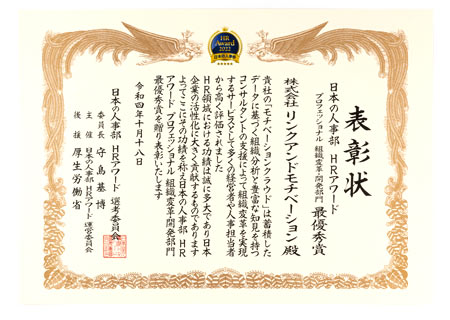 HR
Award
2022
日本の人事部
表彰状
日本の人事部 HRアワード
プロフェッショナル 組織変革・開発部門 最優秀賞
株式会社 リンクアンドモチベーション 殿
貴社の「モチベーションクラウド」は蓄積した
データに基づく組織分析と豊富な知見を持つ
コンサルタントの支援によって組織変革を実現
するサービスとして多くの経営者や人事担当者
から高く評価されました
HR領域における功績は誠に多大であり日本
企業の活性化に大きく貢献するものであります
よってここにその功績を称え日本の人事部 HR
アワード プロフェッショナル 組織変革・開発部門
最優秀賞を贈り表彰いたします
令和四年十月十八日
日本の人事部 HRアワード 選考委員会
委員長 守島基博
主催 日本の人事部「HRアワード」運営委員会
後援 厚生労働省